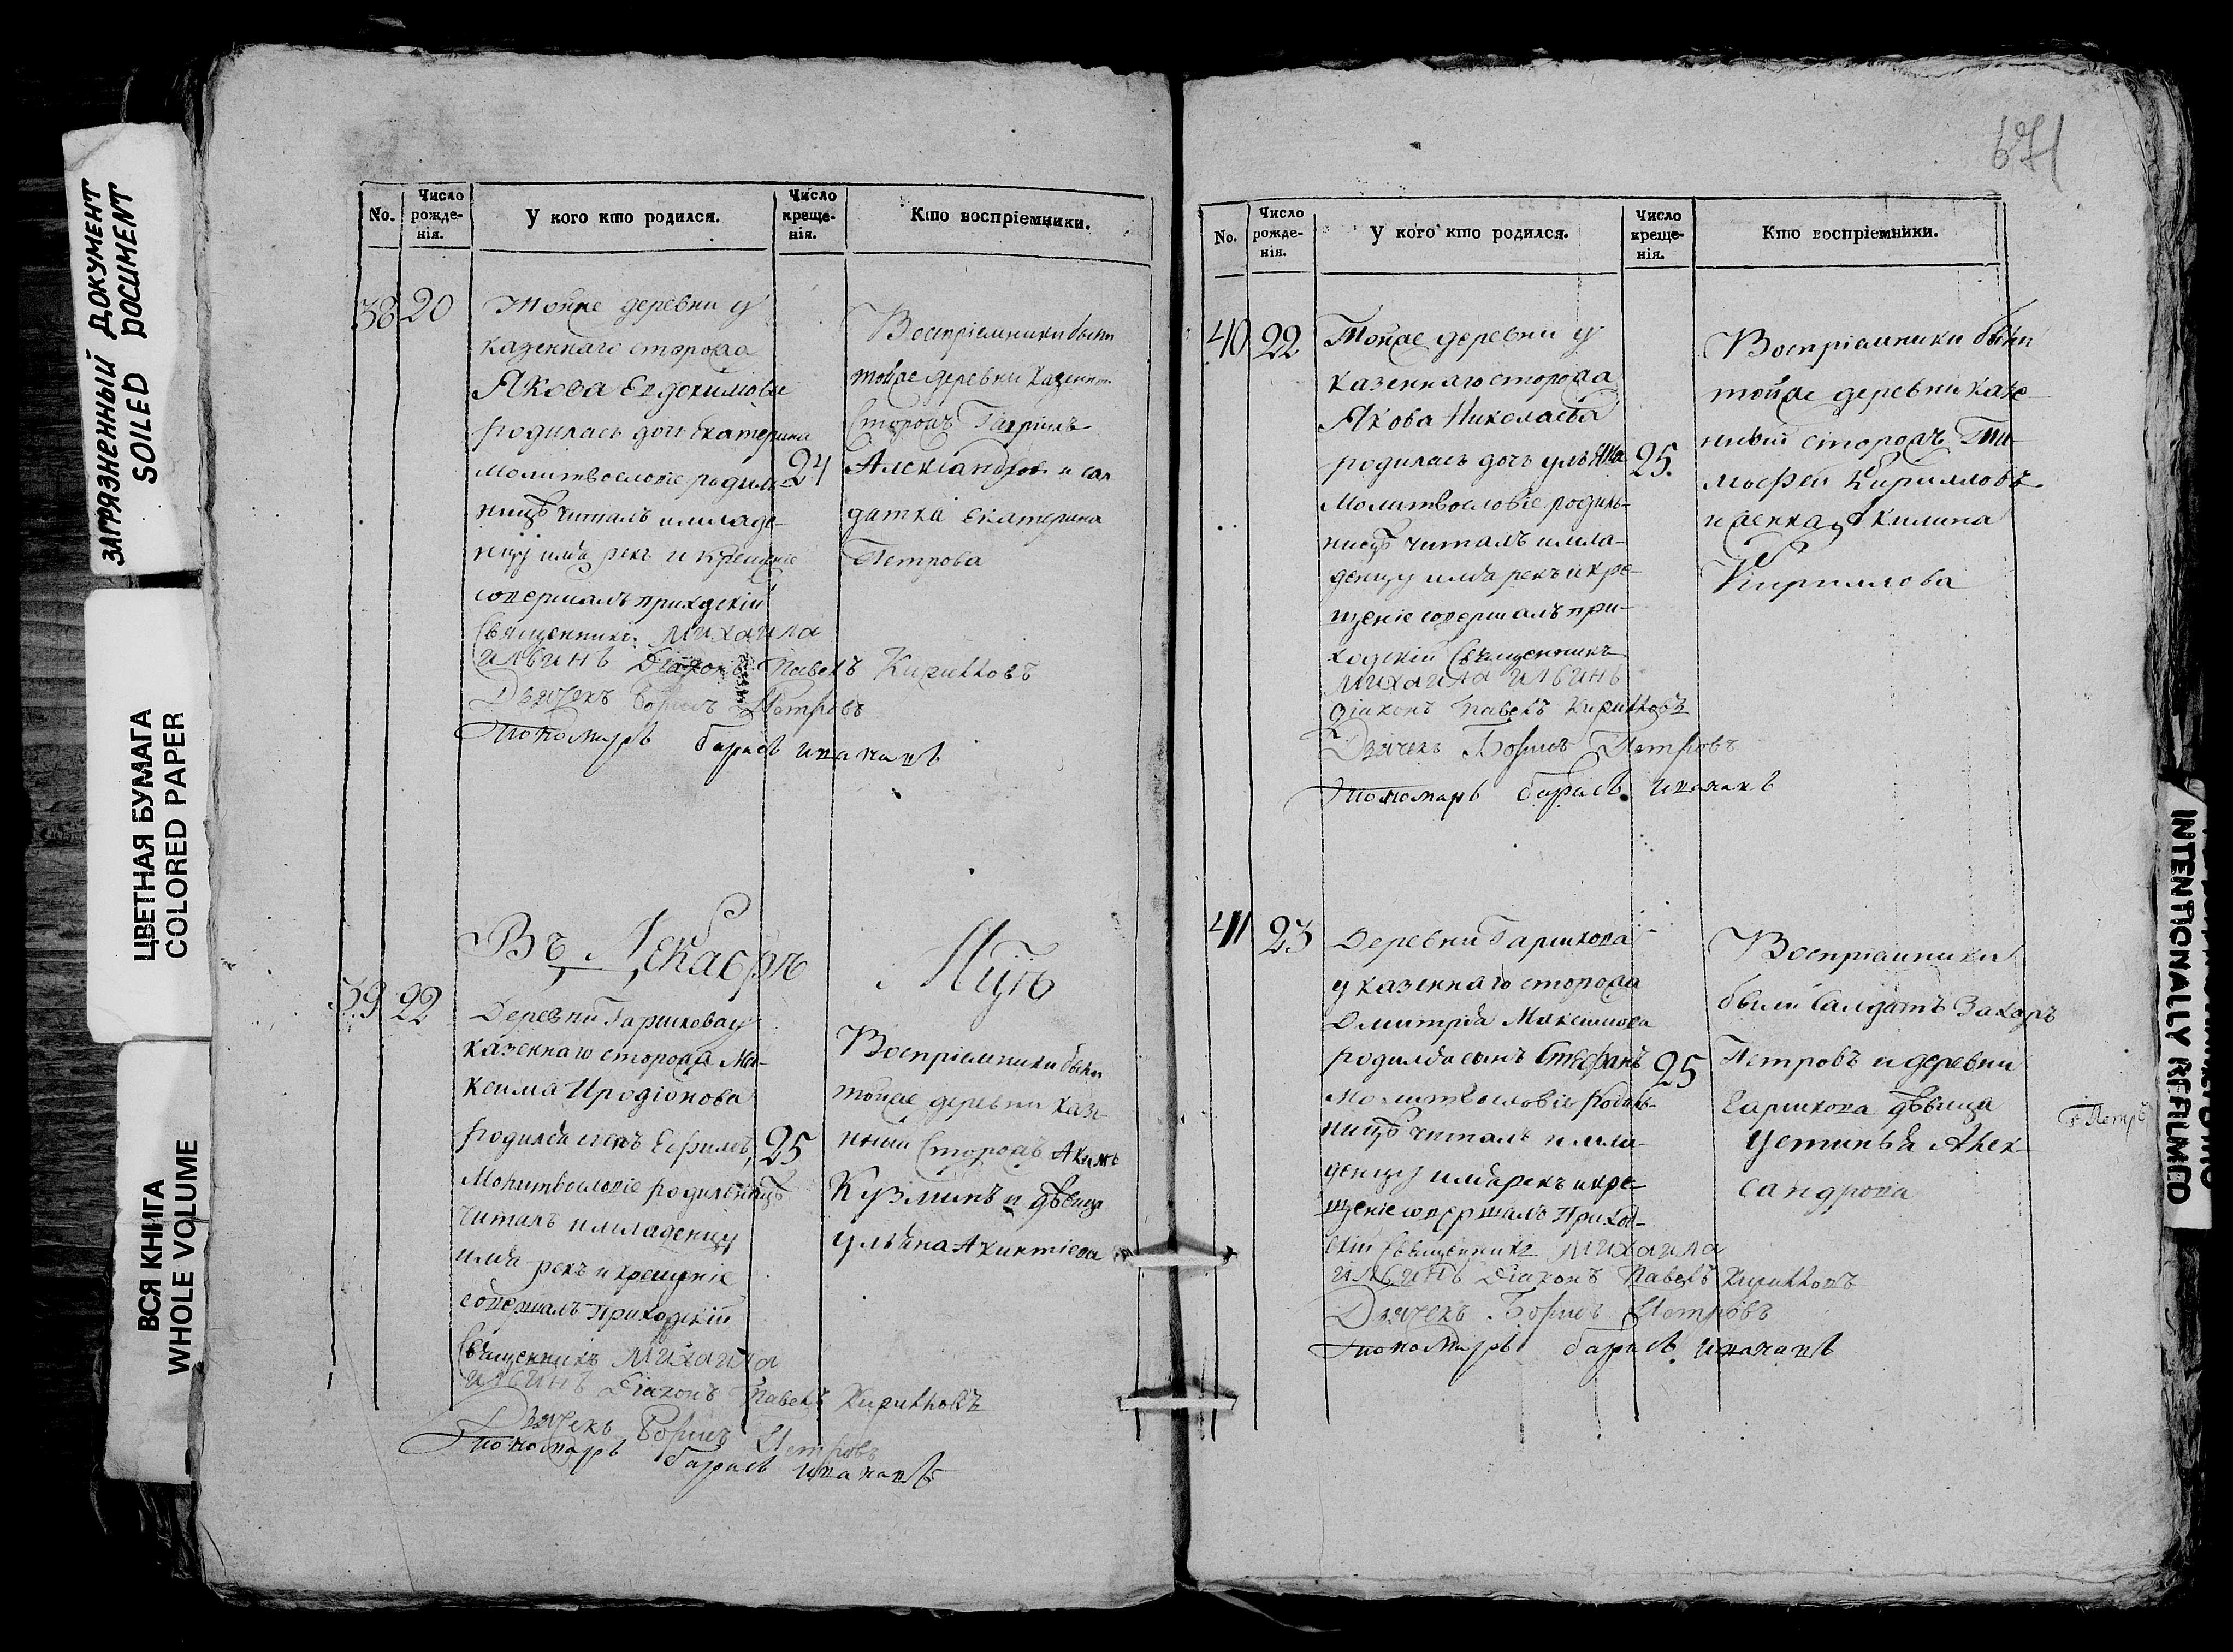 ЗАГРЯЗНЕННЫЙ ДОКУМЕНТ
SOILED DOCUMENT
ЦВЕТНАЯ БУМАГА
COLORED PAPER
ВСЯ КНИГА
WHOLE VOLUME
No.
Число рожденія.
У кого кто родился.
Число крещенія.
Кто воспріемники.
38 20
Тойже деревни у
казеннаго сторожа
Якова Евдокимова
родилась дочь Екатерина
молитвословіе родил-
ницѣ читалъ и младе-
нцу имя рекъ и крещеніе
совершалъ приходскій
Священникъ Михаила
Ильинъ Діаконъ Павелъ Кирилловъ
Дьячекъ Борисъ Петровъ
Пономарь барисъ ивановъ
24
Воспріемники были
тойже деревни казенной
Сторожъ Гаврилъ
Александровъ и сал
датка Екатерина
Петрова
Въ Декабрѣ
Мцѣ
39 22
Деревни Гаршкова у
казеннаго сторожа Ма-
ксима Иродіонова
родился сынъ Ефимъ,
Молитвословіе родильницѣ
читалъ и младенцу
имя рекъ и крещеніе
совершалъ приходскій
Священникъ Михаила
Ильинъ Діаконъ Павелъ Кирилловъ
Дьячекъ Борисъ Петровъ
Пономарь барисъ ивановъ
25
Воспріемники были
тойже деревни каз-
ный Сторожъ Акимъ
Кузминъ и дѣвица
Ульяна Акинтіева
671
No.
Число рожденія.
У кого кто родился.
Число крещенія.
Кто воспріемники.
40 22
Тойже деревни у
казеннаго сторожа
Якова Николаева
родилась дочь ульяна
Молитвословіе родиль-
ницѣ читалъ и мла-
денцу имя рекъ и кре-
щеніе совершалъ при-
ходскій Священникъ
Михаила Ильинъ
Діаконъ Павелъ Кирилловъ
Дьячекъ Борисъ Петровъ
Пономарь барисъ ивановъ
25.
Воспріемники были
тойже деревни казе-
нный сторожъ Ти-
мофей Кирилловъ
и женка Акилина
Кириллова
41 23
Деревни Гаршкова
у казеннаго сторожа
Дмитрея Максимова
родился сынъ Стефанъ
Молитвословіе родиль-
ницѣ читалъ и мла-
денцу имя рекъ и кре-
щеніе совершалъ Приход-
скій Священникъ Михаила
Ильинъ Діаконъ Павелъ Кирилловъ
Дьячекъ Борисъ Петровъ
Пономарь барисъ ивановъ
25
Воспріемники
были Салдатъ Захаръ
Петровъ и деревни
Гаршкова дѣвица
Устинья Алек-
сандрова
INTENTIONALLY REFILMED